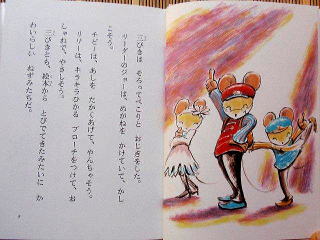 三びきは　そろってぺこりと　おじぎをした。
リーダーのジョーは　めがねを　かけていて、かし
こそう。
チビーは、あしを　たかくあげて、やんちゃそう。
リリーは、キラキラひかる　ブローチをつけて、お
しゃれで、やさしそう。
三びきとも、絵本から　とびでてきたみたいに　か
わいらしい　ねずみたちだ。